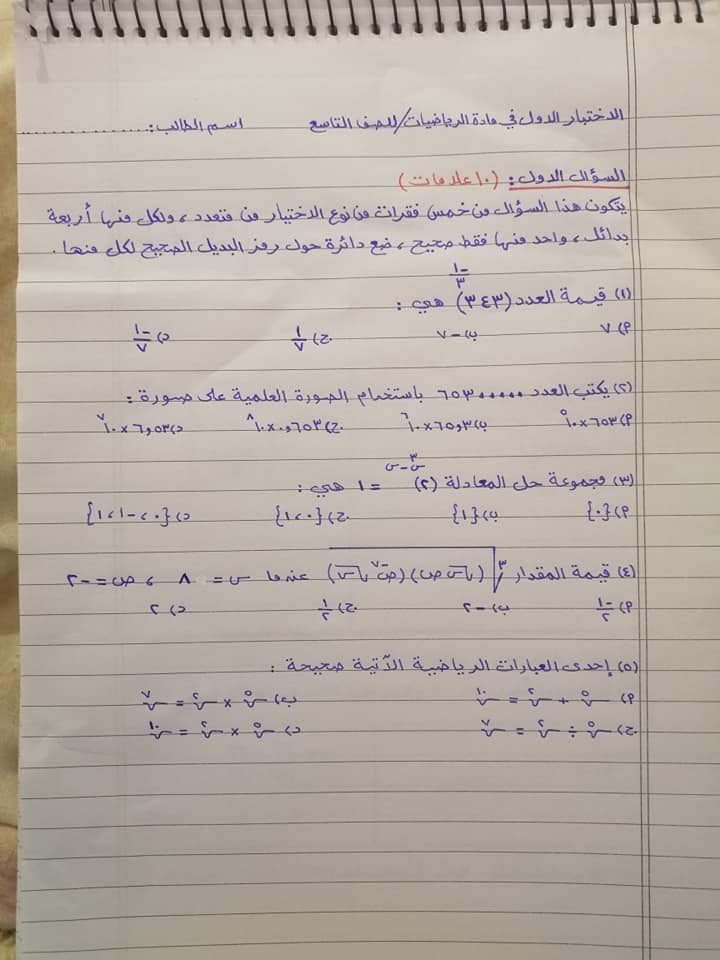 الاختبار الاول في مادة الرياضيات/للصف التاسع اسم الطالب: ....................
السؤال الاول: (١٠ علامات)
يتكون هذا السؤال من خمس فقرات من نوع الاختيار من متعدد، ولكل منها أربعة
بدائل، واحد منها فقط صحيح، ضع دائرة حول رمز البديل الصحيح لكل منها.
(١) قيمة العدد (٣٤٣)^(-١/٣) هي:
أ) ٧ ب) -٧ ج) ١/٧ د) -١/٧
(٢) يكتب العدد ٦٥٣٠٠٠٠٠ باستخدام الصورة العلمية على صورة:
أ) ٦٥٣×١٠^٥ ب) ٦٥,٣×١٠^٦ ج) ٠,٦٥٣×١٠^٨ د) ٦,٥٣×١٠^٧
(٣) مجموعة حل المعادلة (٢)^(س^٣-س) = ١ هي:
أ) {٠} ب) {١} ج) {٠، ١} د) {٠، -١، ١}
(٤) قيمة المقدار ∛((√س ص)(ص^٧ √س)) عندما س = ٨ ، ص = -٢
أ) -١/٢ ب) -٢ ج) ١/٢ د) ٢
(٥) إحدى العبارات الرياضية الآتية صحيحة:
أ) س^٥ + س^٢ = س^١٠ ب) س^٥ × س^٢ = س^٧
ج) س^٥ ÷ س^٢ = س^٧ د) س^٥ × س^٢ = س^١٠